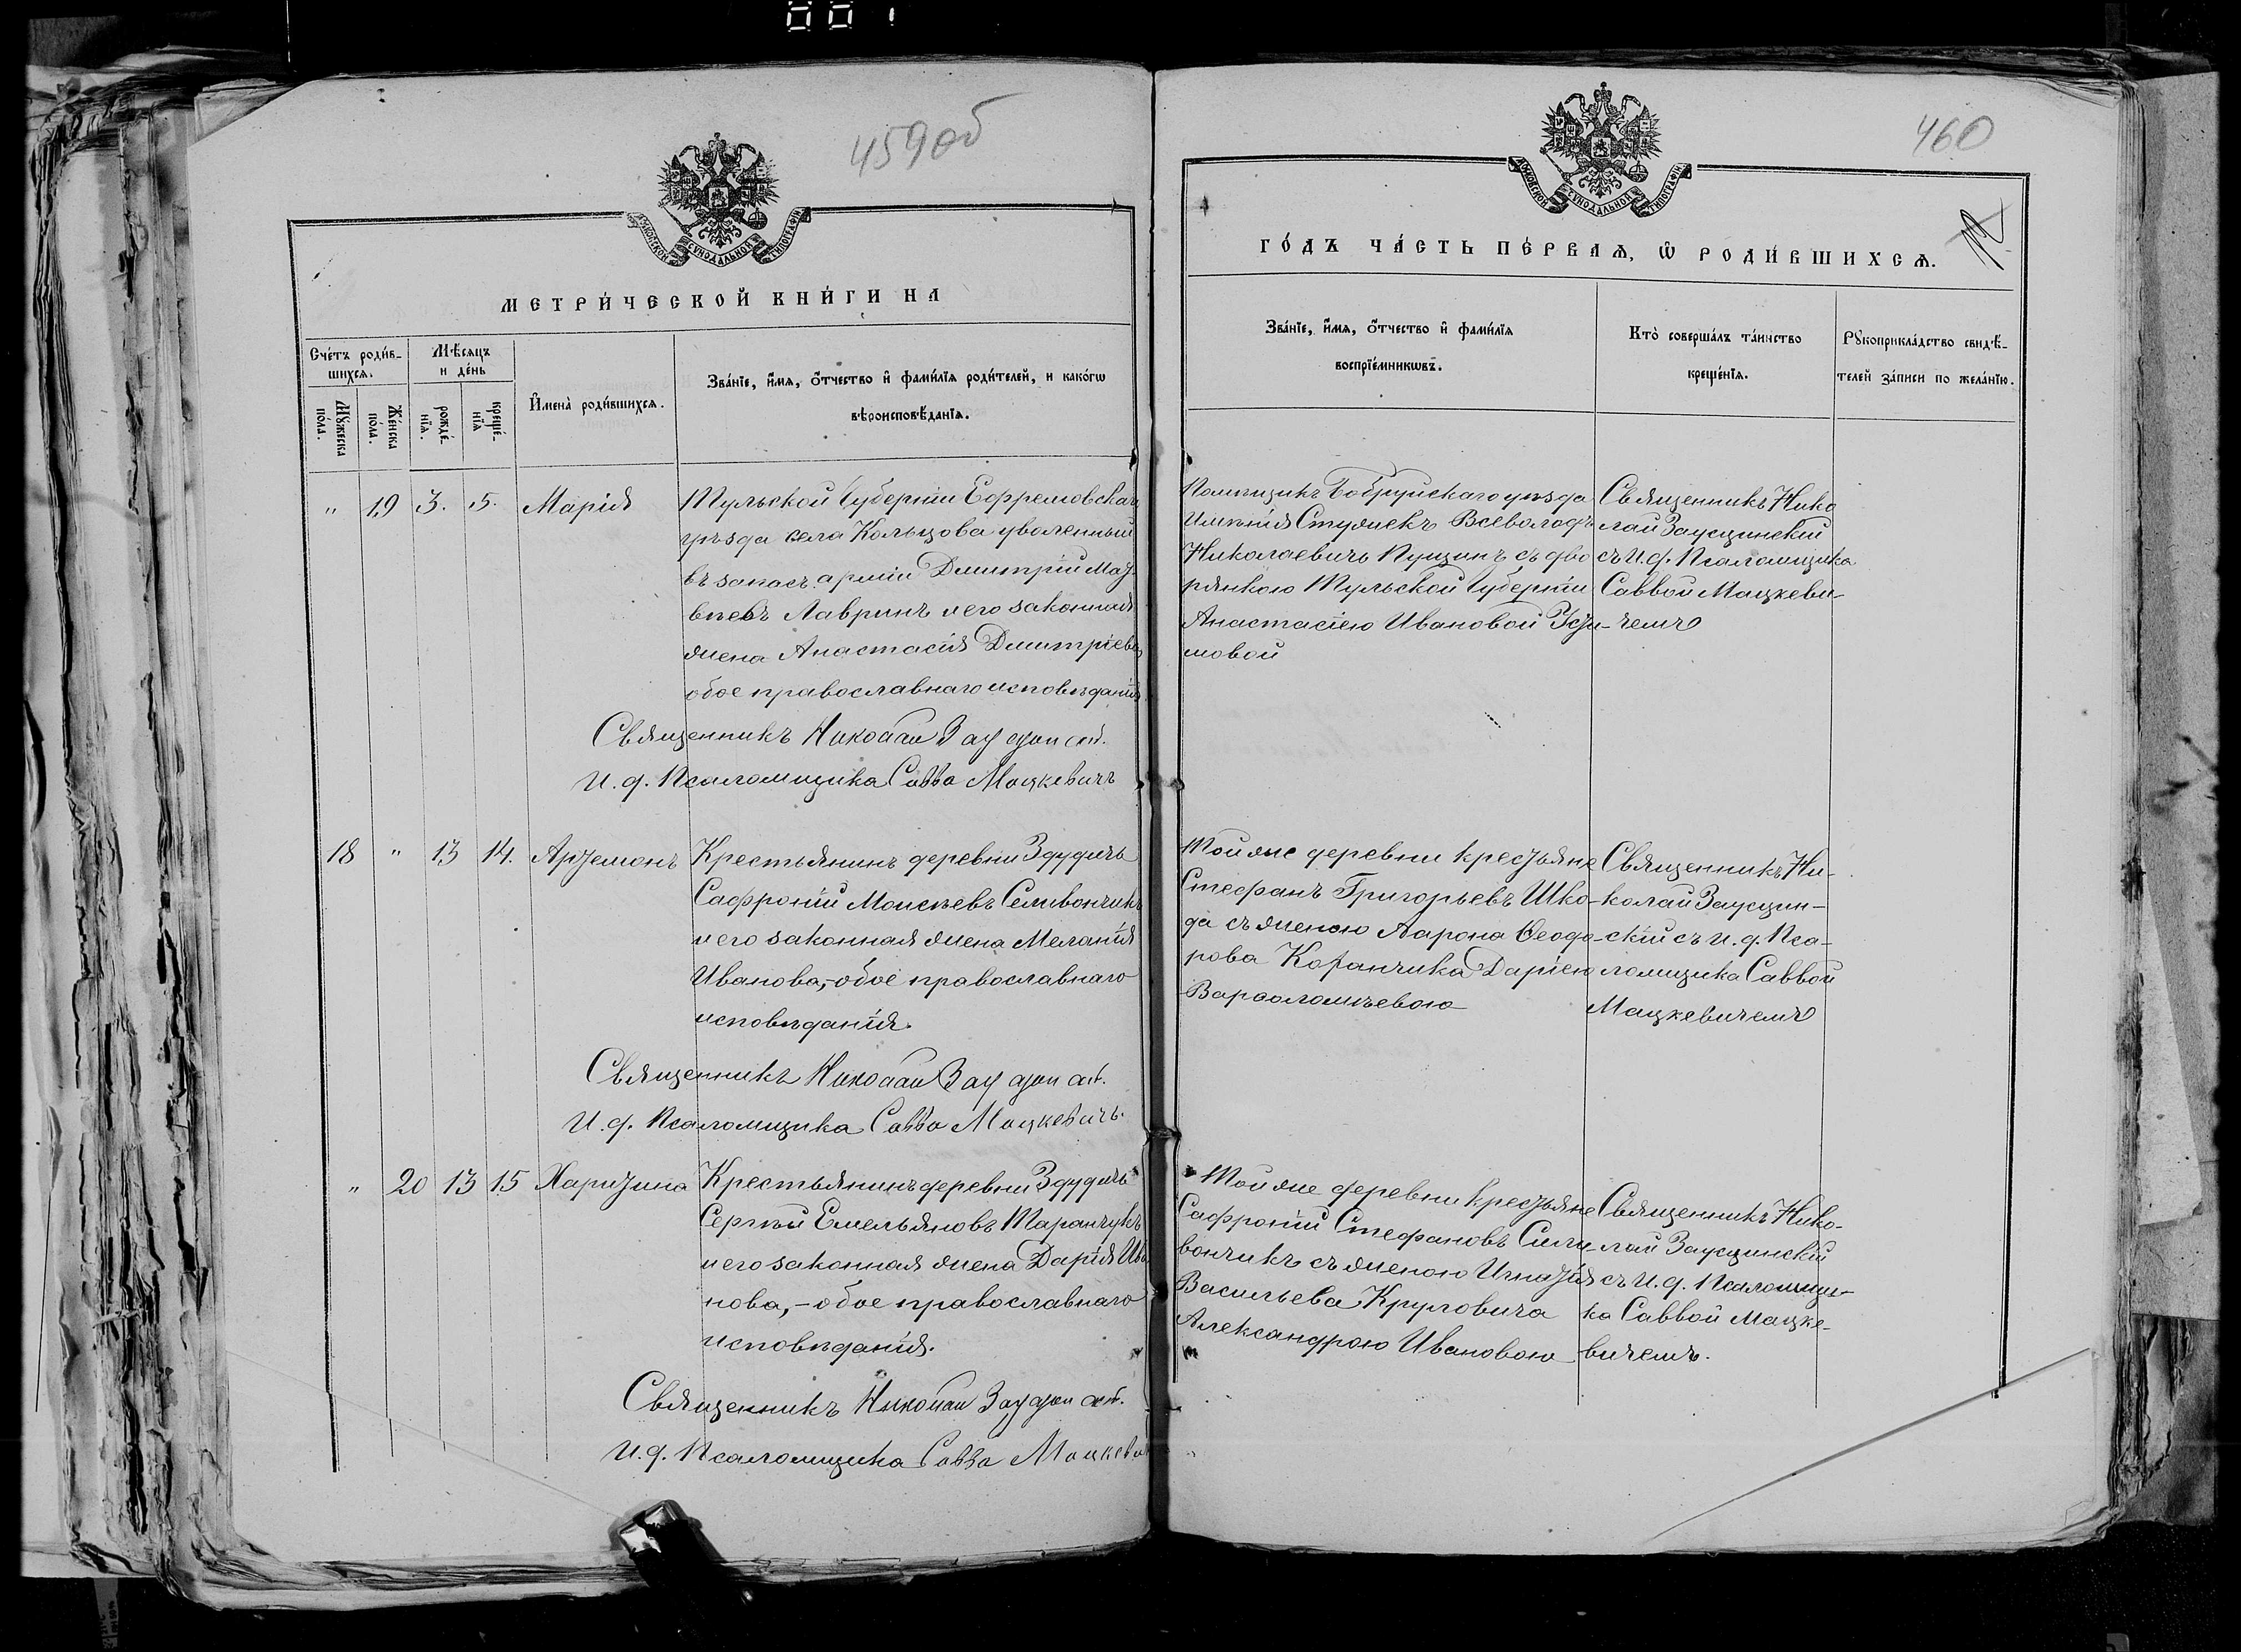 001
459об
МОСКОВСКОЙ СѴНОДАЛЬНОЙ ТИПОГРАФІИ
МЕТРИ́ЧЕСКОЙ КНИ́ГИ НА
Сче́тъ роди́в-
шихсѧ.
Мѣ́сѧцъ
и де́нь
Мꙋ́жеска
по́ла.
Же́нска
по́ла.
рожде́-
нїѧ.
креще́-
нїѧ
И҆мена̀ роди́вшихсѧ.
Зва́нїе, и҆́мѧ, ѻ҆́тчество и҆ фами́лїѧ роди́телей, и како́гѡ
вѣроисповѣ́данїѧ.
" 19 3. 5. Марія
Тульской Губерніи Ефремовскаго
уѣзда села Кольцова уволенный
въ запасъ арміи Дмитрій Мат-
вѣевъ Лавринъ и его законная
жена Анастасія Дмитріева
обое православнаго исповѣданія.
Священникъ Николай Заусцинскій.
И. д. Псаломщика Савва Мацкевичъ
18 " 13 14. Артемонъ
Крестьянинъ деревни Здудичъ
Сафроній Моисѣевъ Селивончикъ
и его законная жена Меланія
Иванова,-обое православнаго
исповѣданія.
Священникъ Николай Заусцинскій.
И. д. Псаломщика Савва Мацкевичъ.
" 20 13 15 Харитина
Крестьянинъ деревни Здудичъ
Сергѣй Емельяновъ Таранчукъ
и его законная жена Дарія Ива
нова,-обое православнаго
исповѣданія.
Священникъ Николай Заусцинскій.
И. д. Псаломщика Савва Мацкевичъ
460
МОСКОВСКОЙ СѴНОДАЛЬНОЙ ТИПОГРАФІИ
ГО́ДЪ ЧА́СТЬ ПЕ́РВАѦ, Ѽ РОДИ́ВШИХСѦ.
Зва́нїе, и҆́мѧ, ѻ҆́тчество и҆ фами́лїѧ
воспрїе́мникѡвъ.
Кто̀ соверша́лъ та́инство
креще́нїѧ.
Рꙋкоприкла́дство свидѣ́-
телей за́писи по жела́нїю.
Помѣщикъ Бобруйскаго уѣзда
Имѣнія Стужекъ Всеволодъ
Николаевичъ Пущинъ съ дво
рянкою Тульской Губерніи
Анастасіею Ивановой Усти-
мовой
Священникъ Нико
лай Заусцинскій
съ И. д. Псаломщика
Саввой Мацкеви-
чемъ
Той же деревни крестьяне
Стефанъ Григорьевъ Шко-
да съ женою Аарона Ѳеодо-
рова Кофанчика Даріею
Варѳоломѣевою
Священникъ Ни-
колай Заусцин-
скій съ и. д. Пса-
ломщика Саввой
Мацкевичемъ
Той же деревни крестьяне
Сафроній Стефановъ Сили-
вончикъ съ женою Игнатія
Васильева Круловича
Александрою Ивановою
Священникъ Нико-
лай Заусцинскій
съ И. д. Псаломщи-
ка Саввой Мацке-
вичемъ.